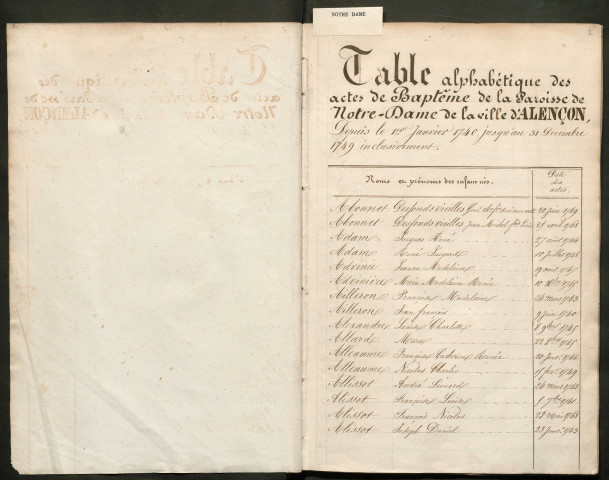 NOTRE DAME
Table alphabétique des
actes de Baptême de la Paroisse de
Notre-Dame de la ville d'ALENÇON,
Depuis le 1er Janvier 1740 jusqu'au 31 Décembre
1749 inclusivement.
Noms et prénoms des enfans nés. Date des actes.
Abonnet Desfonds vieilles 20 Juin 1749
Abonnet Desfonds vieilles Jean Michel 25 avril 1748
Adam Jacques René 27 août 1746
Adam René Jacques 10 Juillet 1748
Advinée Jeanne Madeleine 19 avril 1745
Advinière Marie Madeleine Renée 10 Xbre 1745
Ailleron Françoise Madeleine 26 mars 1743
Ailleron Jean françois 9 Juin 1740
Alexandre Louise Charlotte 8 9bre 1745
Allard Marie 22 8bre 1745
Alleaume Françoise Catherine Renée 20 Janv. 1746
Alleaume Nicolas Charles 15 fév. 1749
Allissot André Léonord 26 mars 1743
Alissot Françoise Louise 5 7bre 1741
Alissot François Nicolas 28 Mai 1748
Alissot Joseph Daniel 23 Janv. 1743